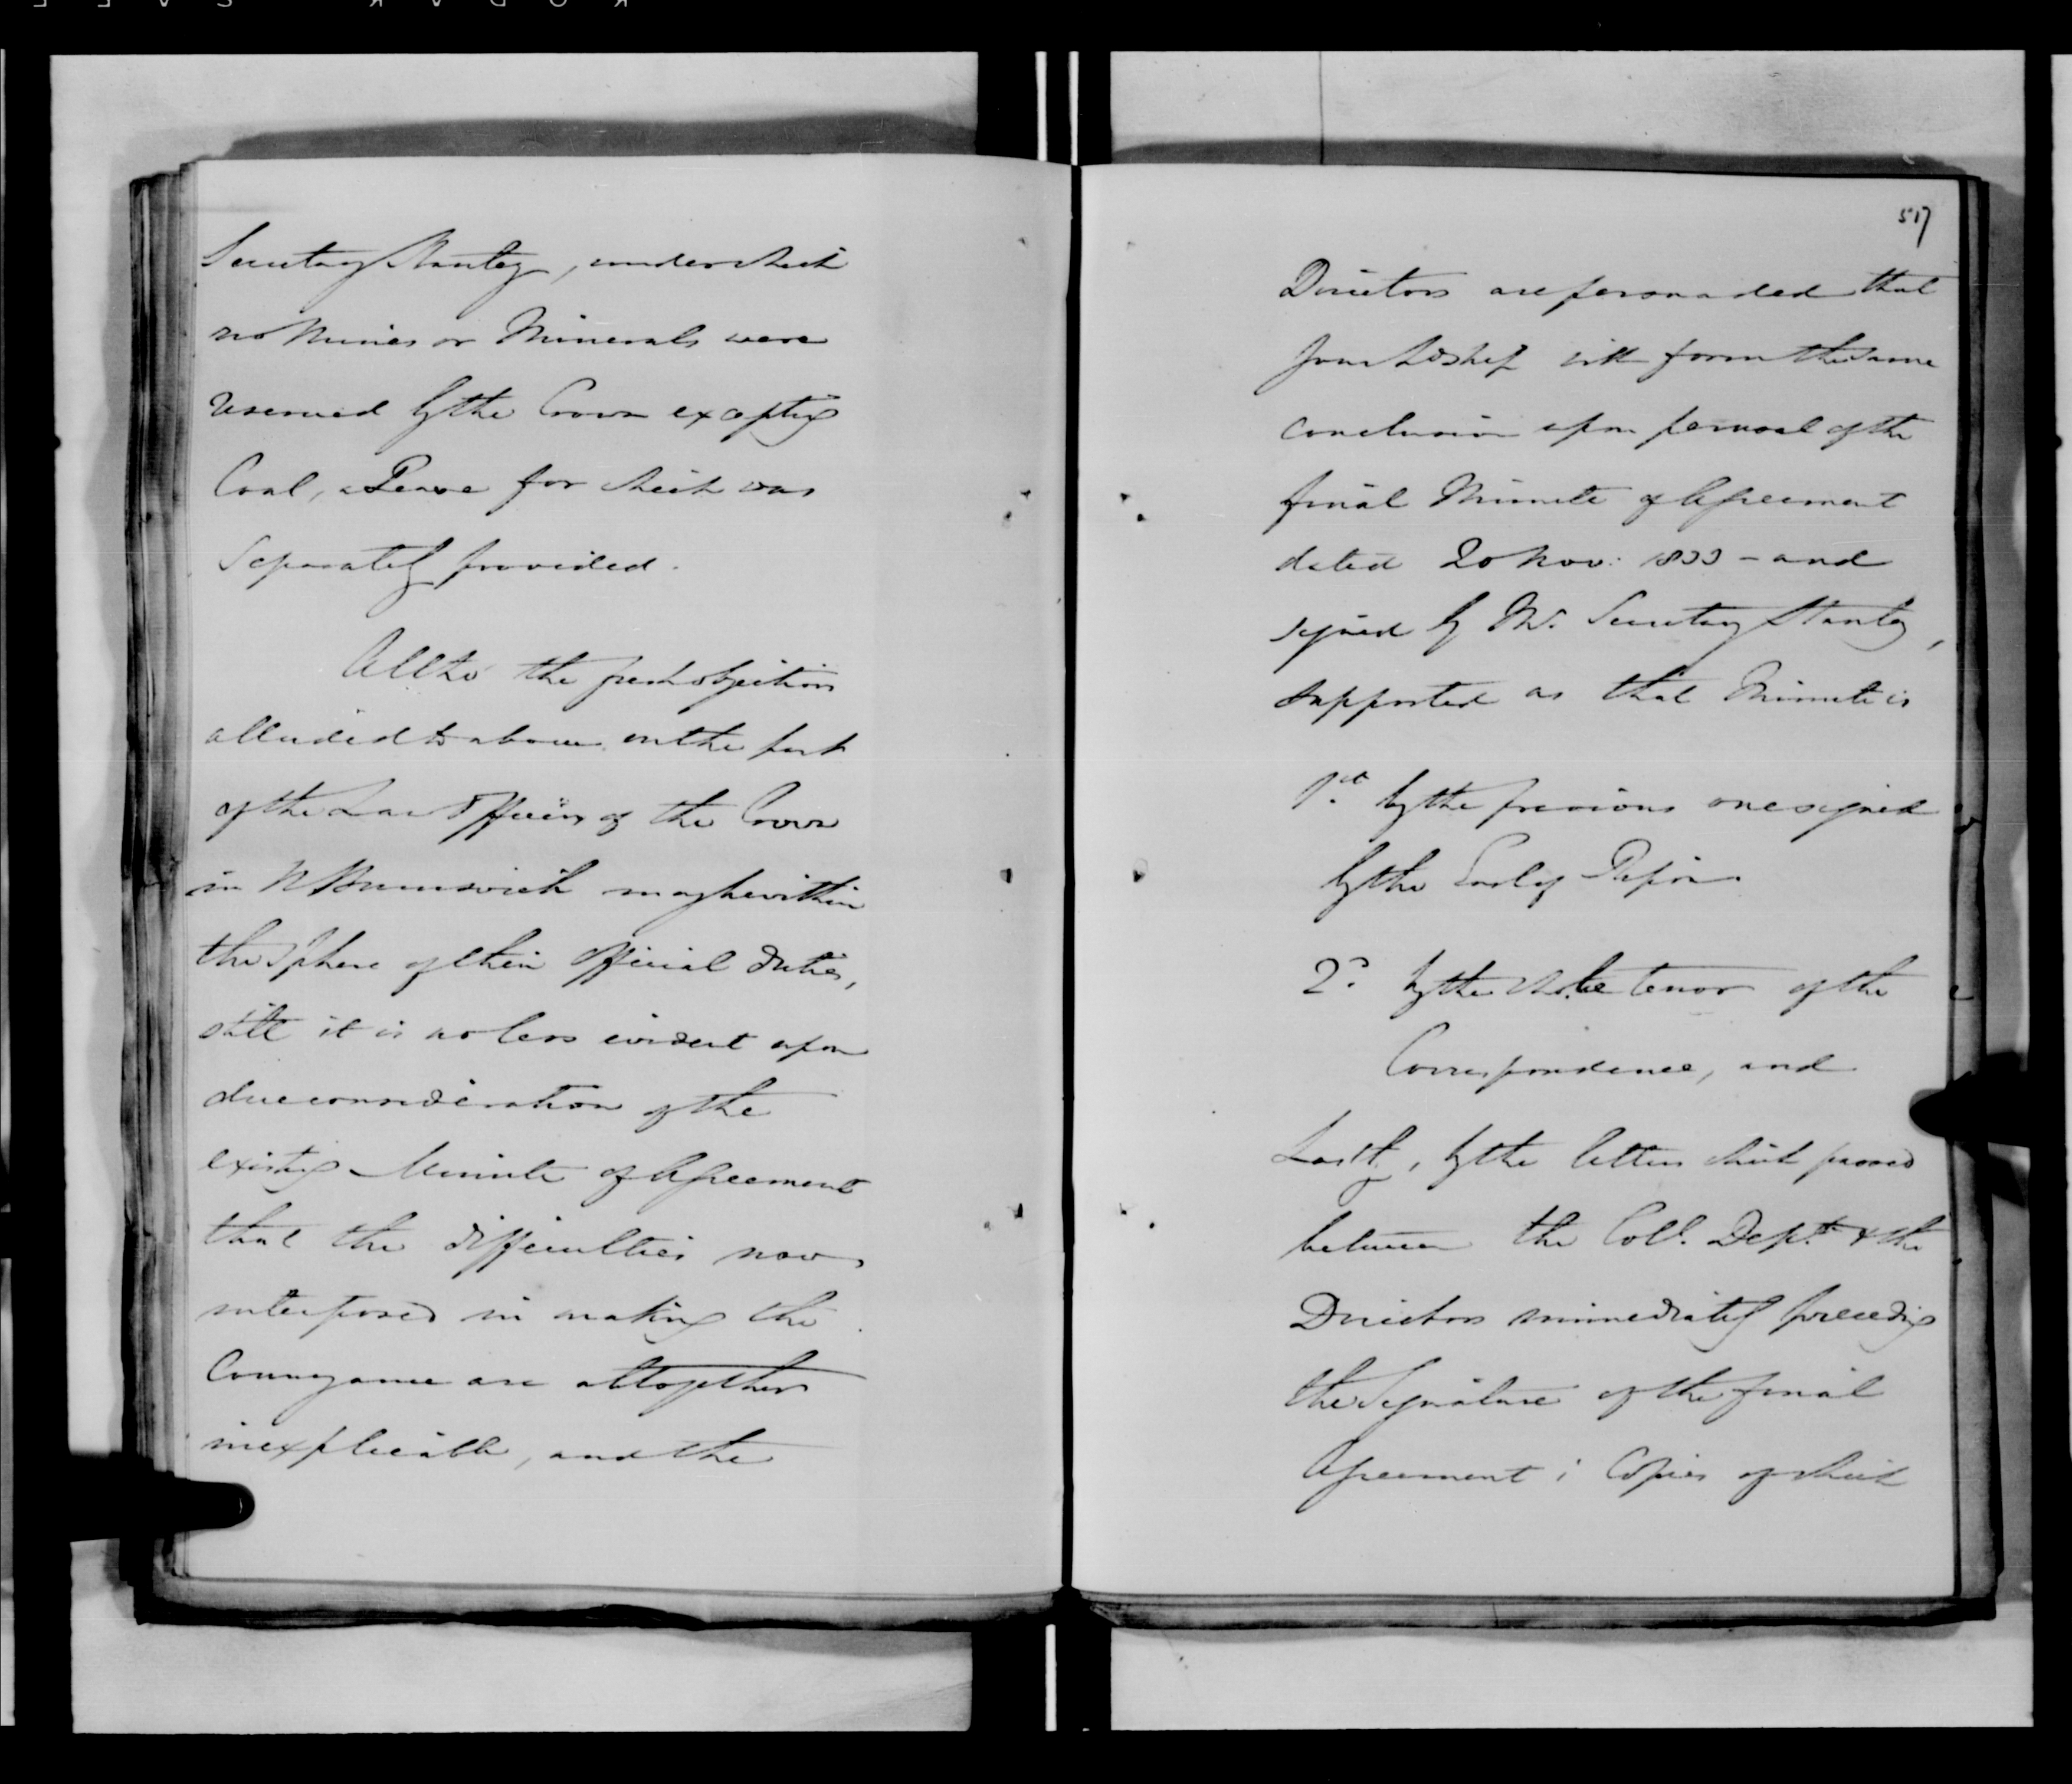 Secretary Stanley, under which
no Mines or Minerals were
reserved by the Crown excepting
Coal, a Lease for which was
separately provided.
Altho' the fresh objections
alluded to above on the part
of the Law Officers of the Crown
in N Brunswick may be within
the sphere of their official duties,
still it is no less evident upon
due consideration of the
existing Minute of Agreement
that the difficulties now
interposed in making the
Conveyance are altogether
inexplicable, and the
517
Directors are persuaded that
your Lordship will form the same
conclusion upon perusal of the
final Minute of Agreement
dated 20 Nov: 1833 - and
signed by Mr. Secretary Stanley,
supported as that Minute is
1st by the previous one signed
by the Earl of Ripon.
2d by the whole tenor of the
Correspondence, and
Lastly, by the letters which passed
between the Coll. Dept. & the
Directors immediately preceding
the Signature of the final
Agreement; Copies of which